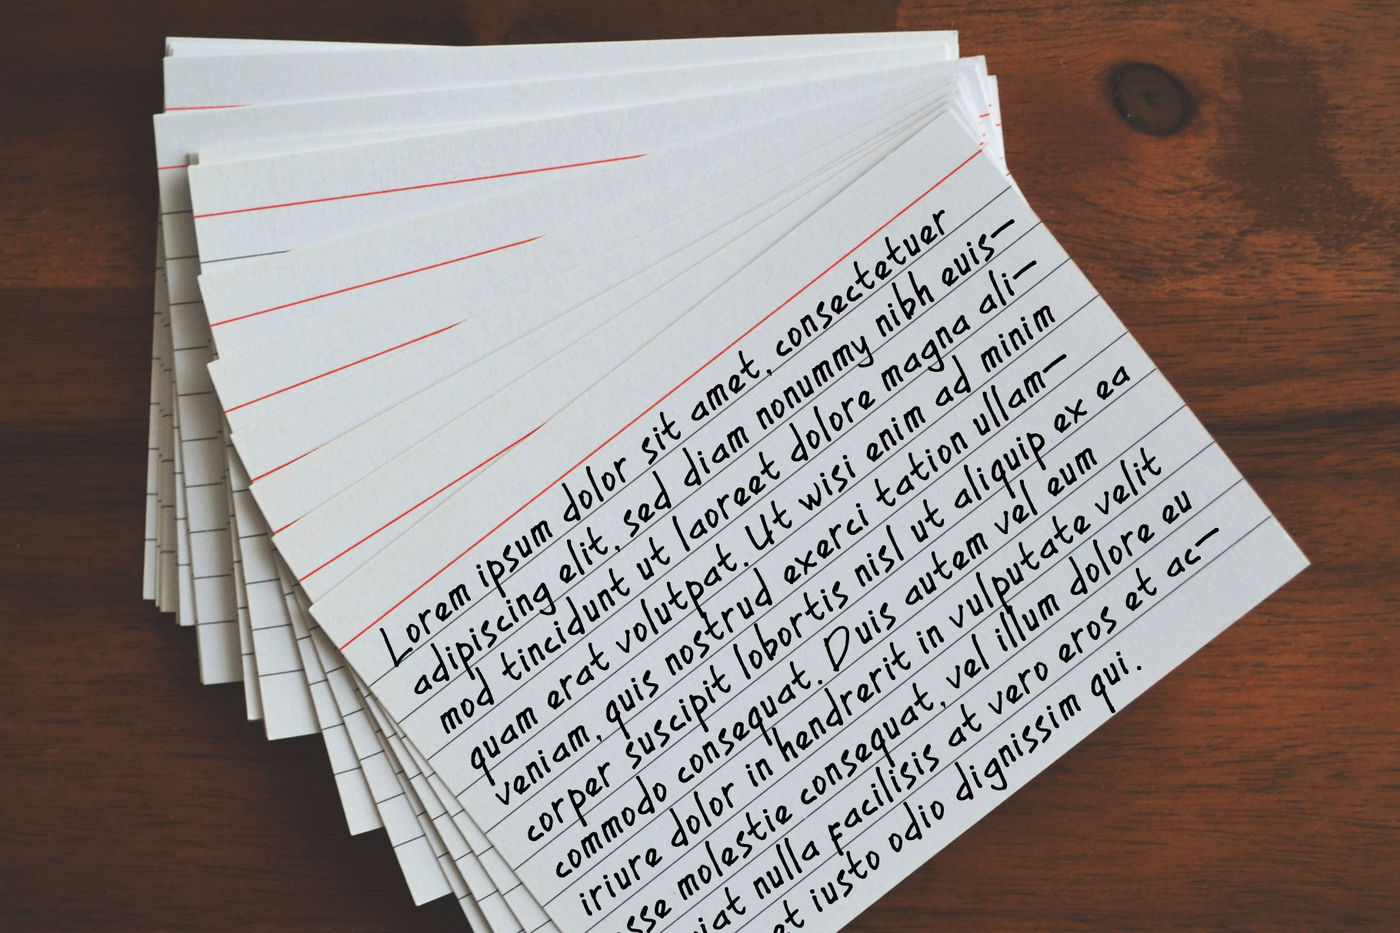 Lorem ipsum dolor sit amet, consectetuer
adipiscing elit, sed diam nonummy nibh euis-
mod tincidunt ut laoreet dolore magna ali-
quam erat volutpat. Ut wisi enim ad minim
veniam, quis nostrud exerci tation ullam-
corper suscipit lobortis nisl ut aliquip ex ea
commodo consequat. Duis autem vel eum
iriure dolor in hendrerit in vulputate velit
sse molestie consequat, vel illum dolore eu
iat nulla facilisis at vero eros et ac-
et iusto odio dignissim qui.